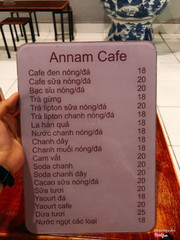 Annam Cafe
Cafe đen nóng/đá 18
Cafe sữa nóng/đá 20
Bạc sỉu nóng/đá 20
Trà gừng 18
Trà lipton sữa nóng/đá 20
Trà lipton chanh nóng/đá 20
La hán quả 18
Nước chanh nóng/đá 18
Chanh dây 18
Chanh muối nóng/đá 18
Cam vắt 20
Soda chanh 20
Soda chanh dây 20
Cacao sữa nóng/đá 20
Sữa tươi 20
Yaourt đá 18
Yaourt cafe 20
Dừa tươi 25
Nước ngọt các loại 18